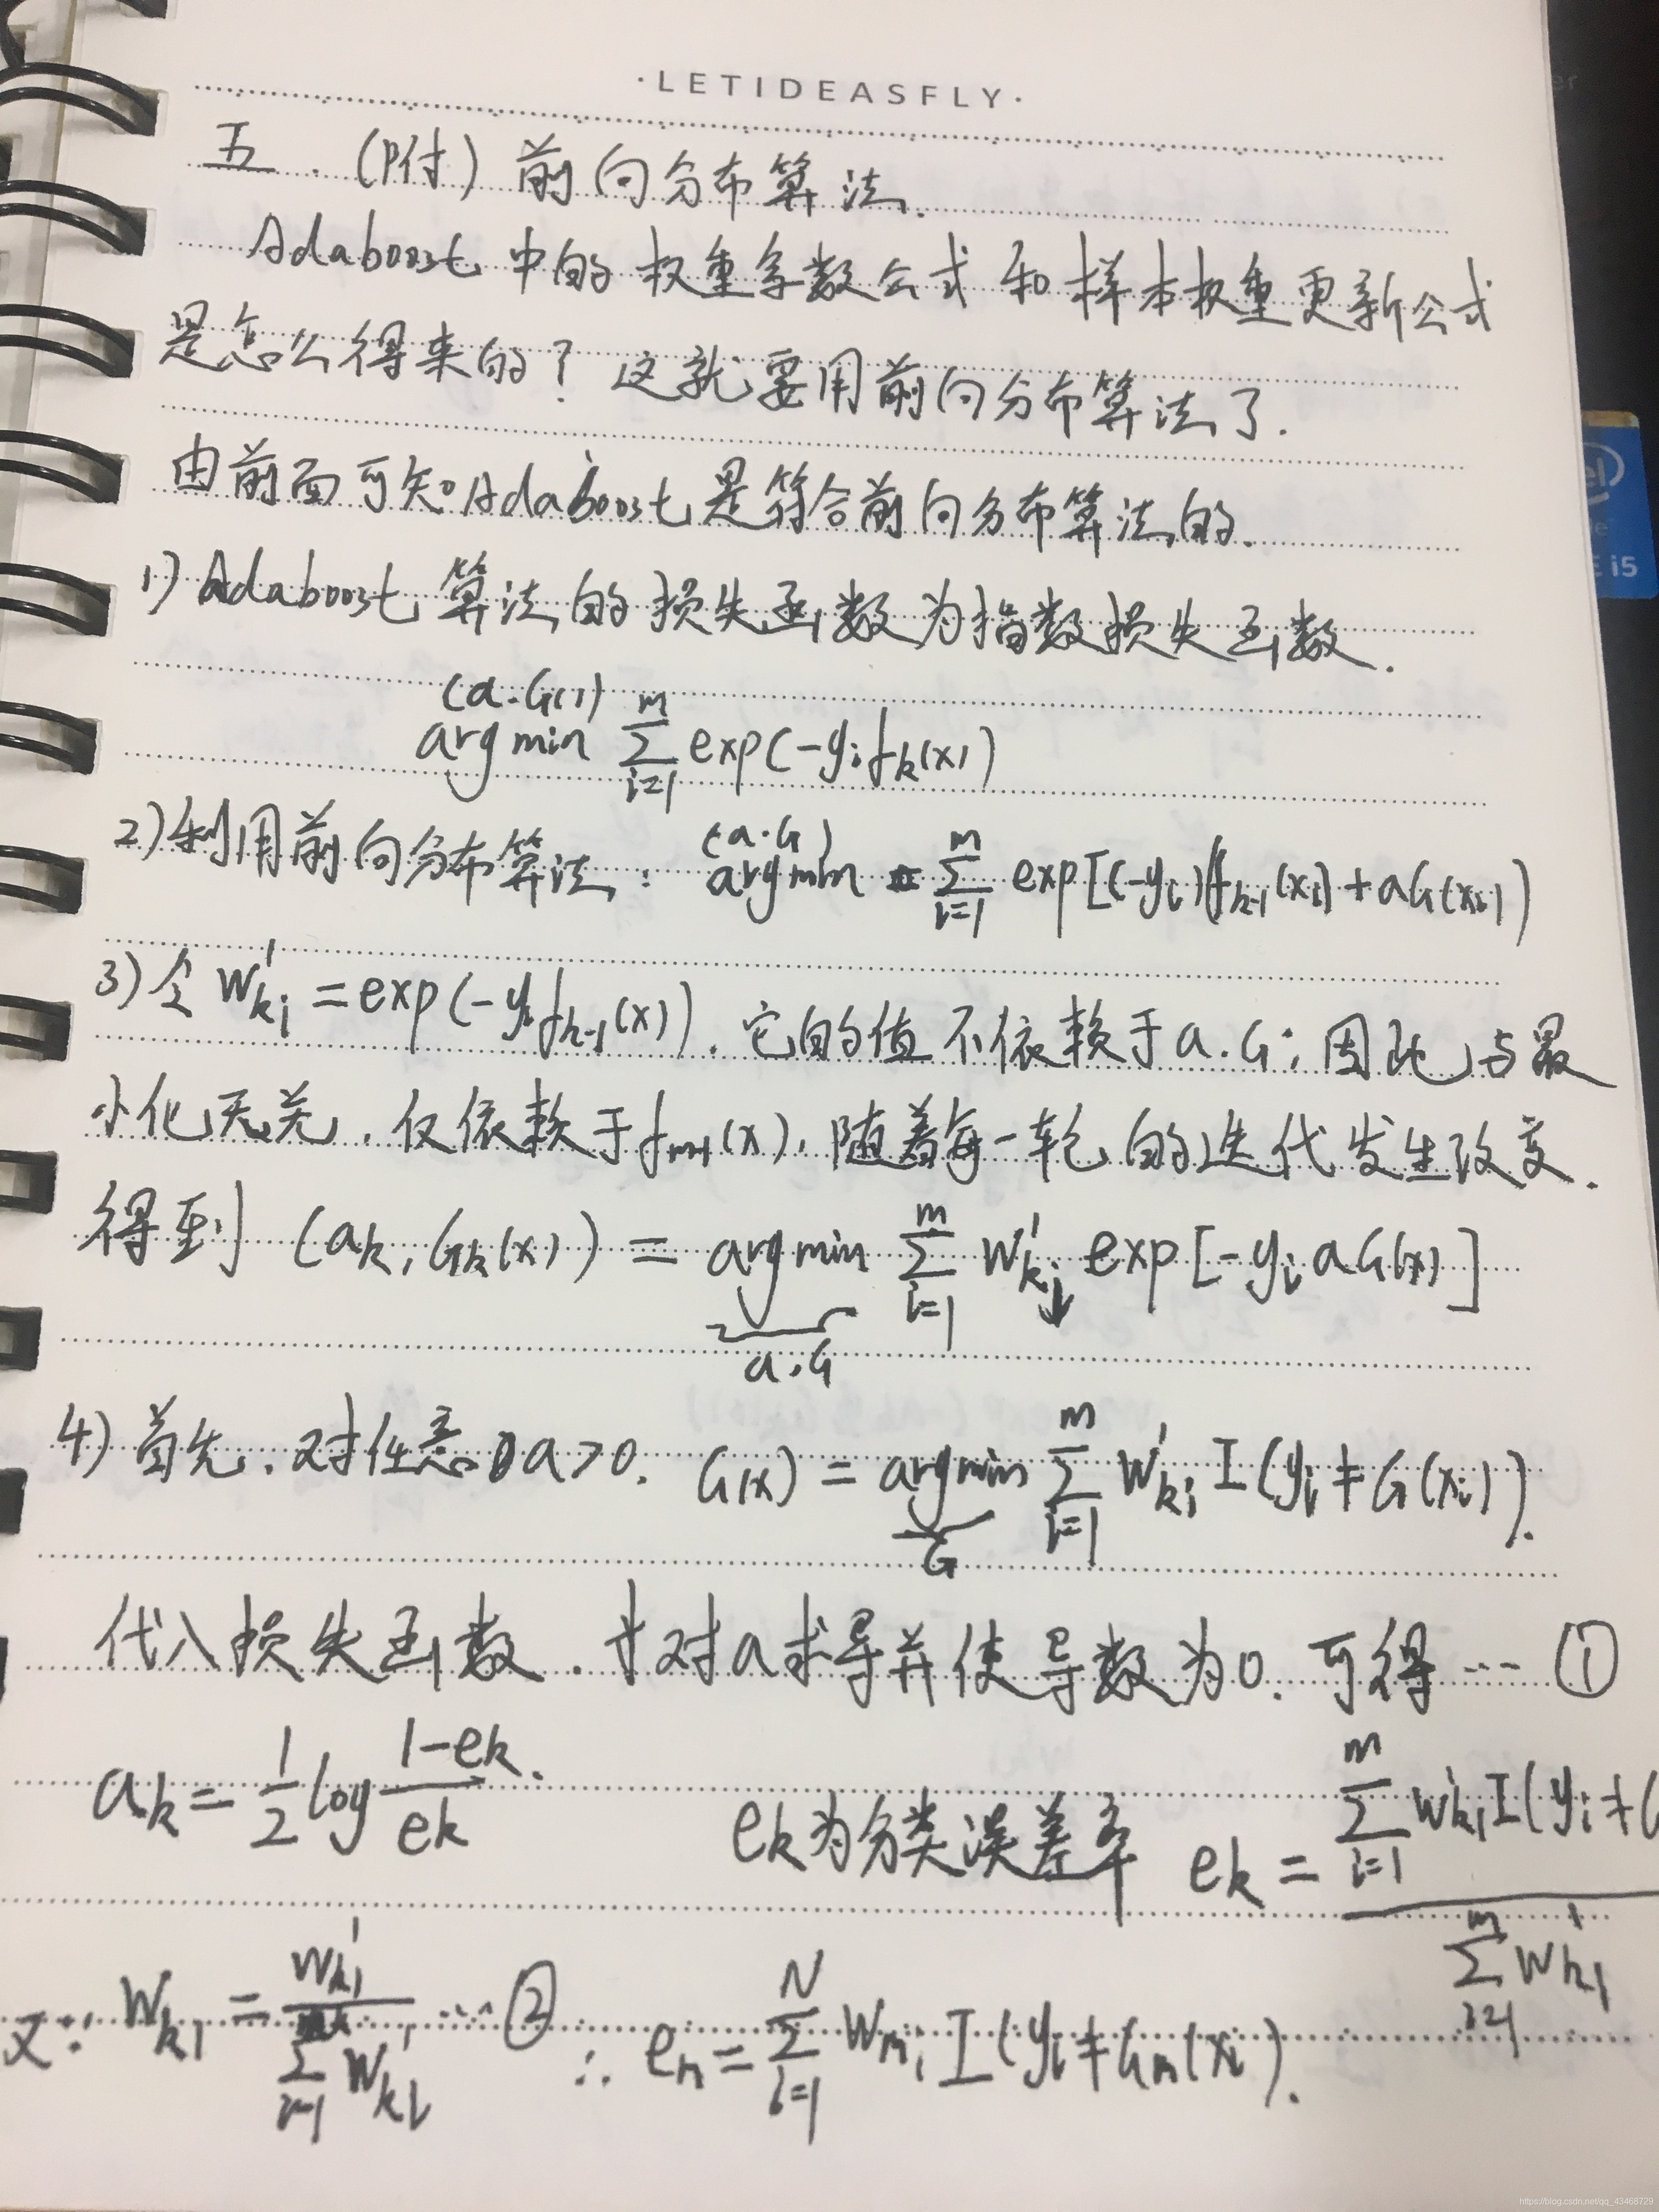 ·LETIDEASFLY·
五.(P付)前向分布算法.
Adaboost中的权重系数公式和样本权重更新公式
是怎么得来的?这就要用前向分布算法了.
由前面可知Adaboost是符合前向分布算法的.
1) Adaboost算法的损失函数为指数损失函数.
(a.G(x))
argmin ∑_{i=1}^{m} exp(-y_i f_k(x))
2)利用前向分布算法: (a.G) argmin ∑_{i=1}^{m} exp[(-y_i)f_{k-1}(x_i)+aG(x_i))
3)令 w'_{ki} = exp(-y_i f_{k-1}(x)). 它的值不依赖于a.G;因此与最
小化无关.仅依赖于f_{m-1}(x).随着每一轮的迭代发生改变.
得到 (a_k, G_k(x)) = argmin ∑_{i=1}^{m} w'_{ki} exp[-y_i aG(x)]
a.G
4)首先.对任意a>0. G(x) = argmin ∑_{i=1}^{m} w'_{ki} I(y_i≠G(x_i)).
G
代入损失函数.对a求导并使导数为0.可得…①
a_k = 1/2 log (1-e_k)/e_k. e_k为分类误差率 e_k = ∑_{i=1}^{m} w'_{ki} I(y_i≠G / ∑_{i=1}^{m} w'_{ki}
又∵ w_{ki} = w'_{ki} / ∑_{i=1} w'_{ki} …② ∴ e_m = ∑_{i=1}^{N} w_{mi} I(y_i≠G_m(x_i)).
i5
https://blog.csdn.net/qq_43468729